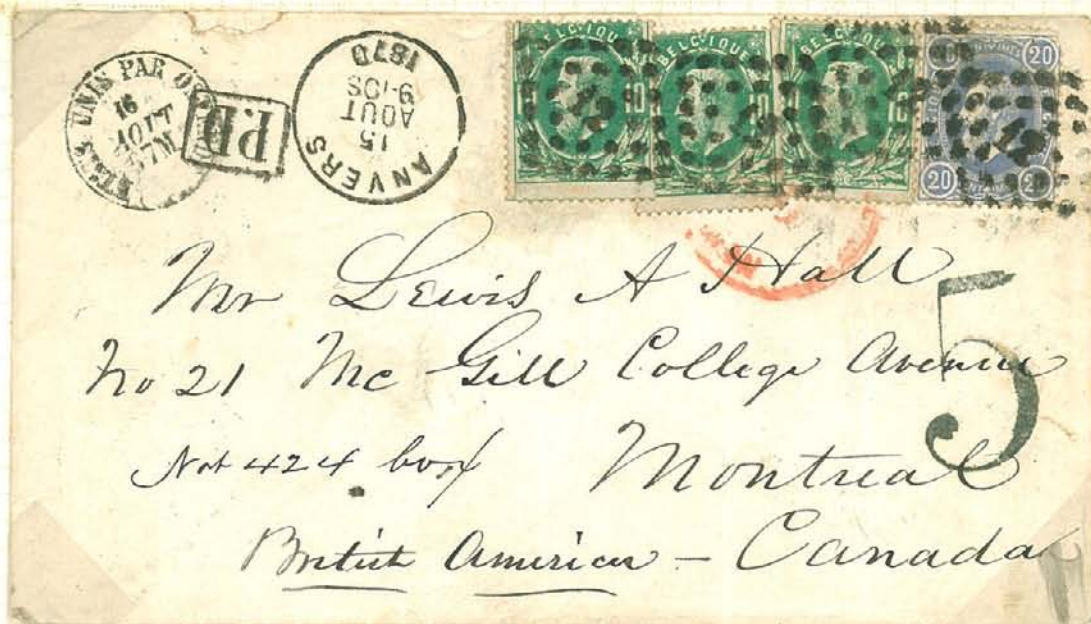 ETATS UNIS PAR OSTENDE
16
AOUT
7M
P.D
ANVERS
15
AOUT
9-10S
1870
BELGIQUE
10
BELGIQUE
10
BELGIQUE
10
CENTIMES
20
20
20
12
12
Mr Lewis A Hall
No 21 Mc Gill College Avenue
Not 424 box
Montreal
British America - Canada
5